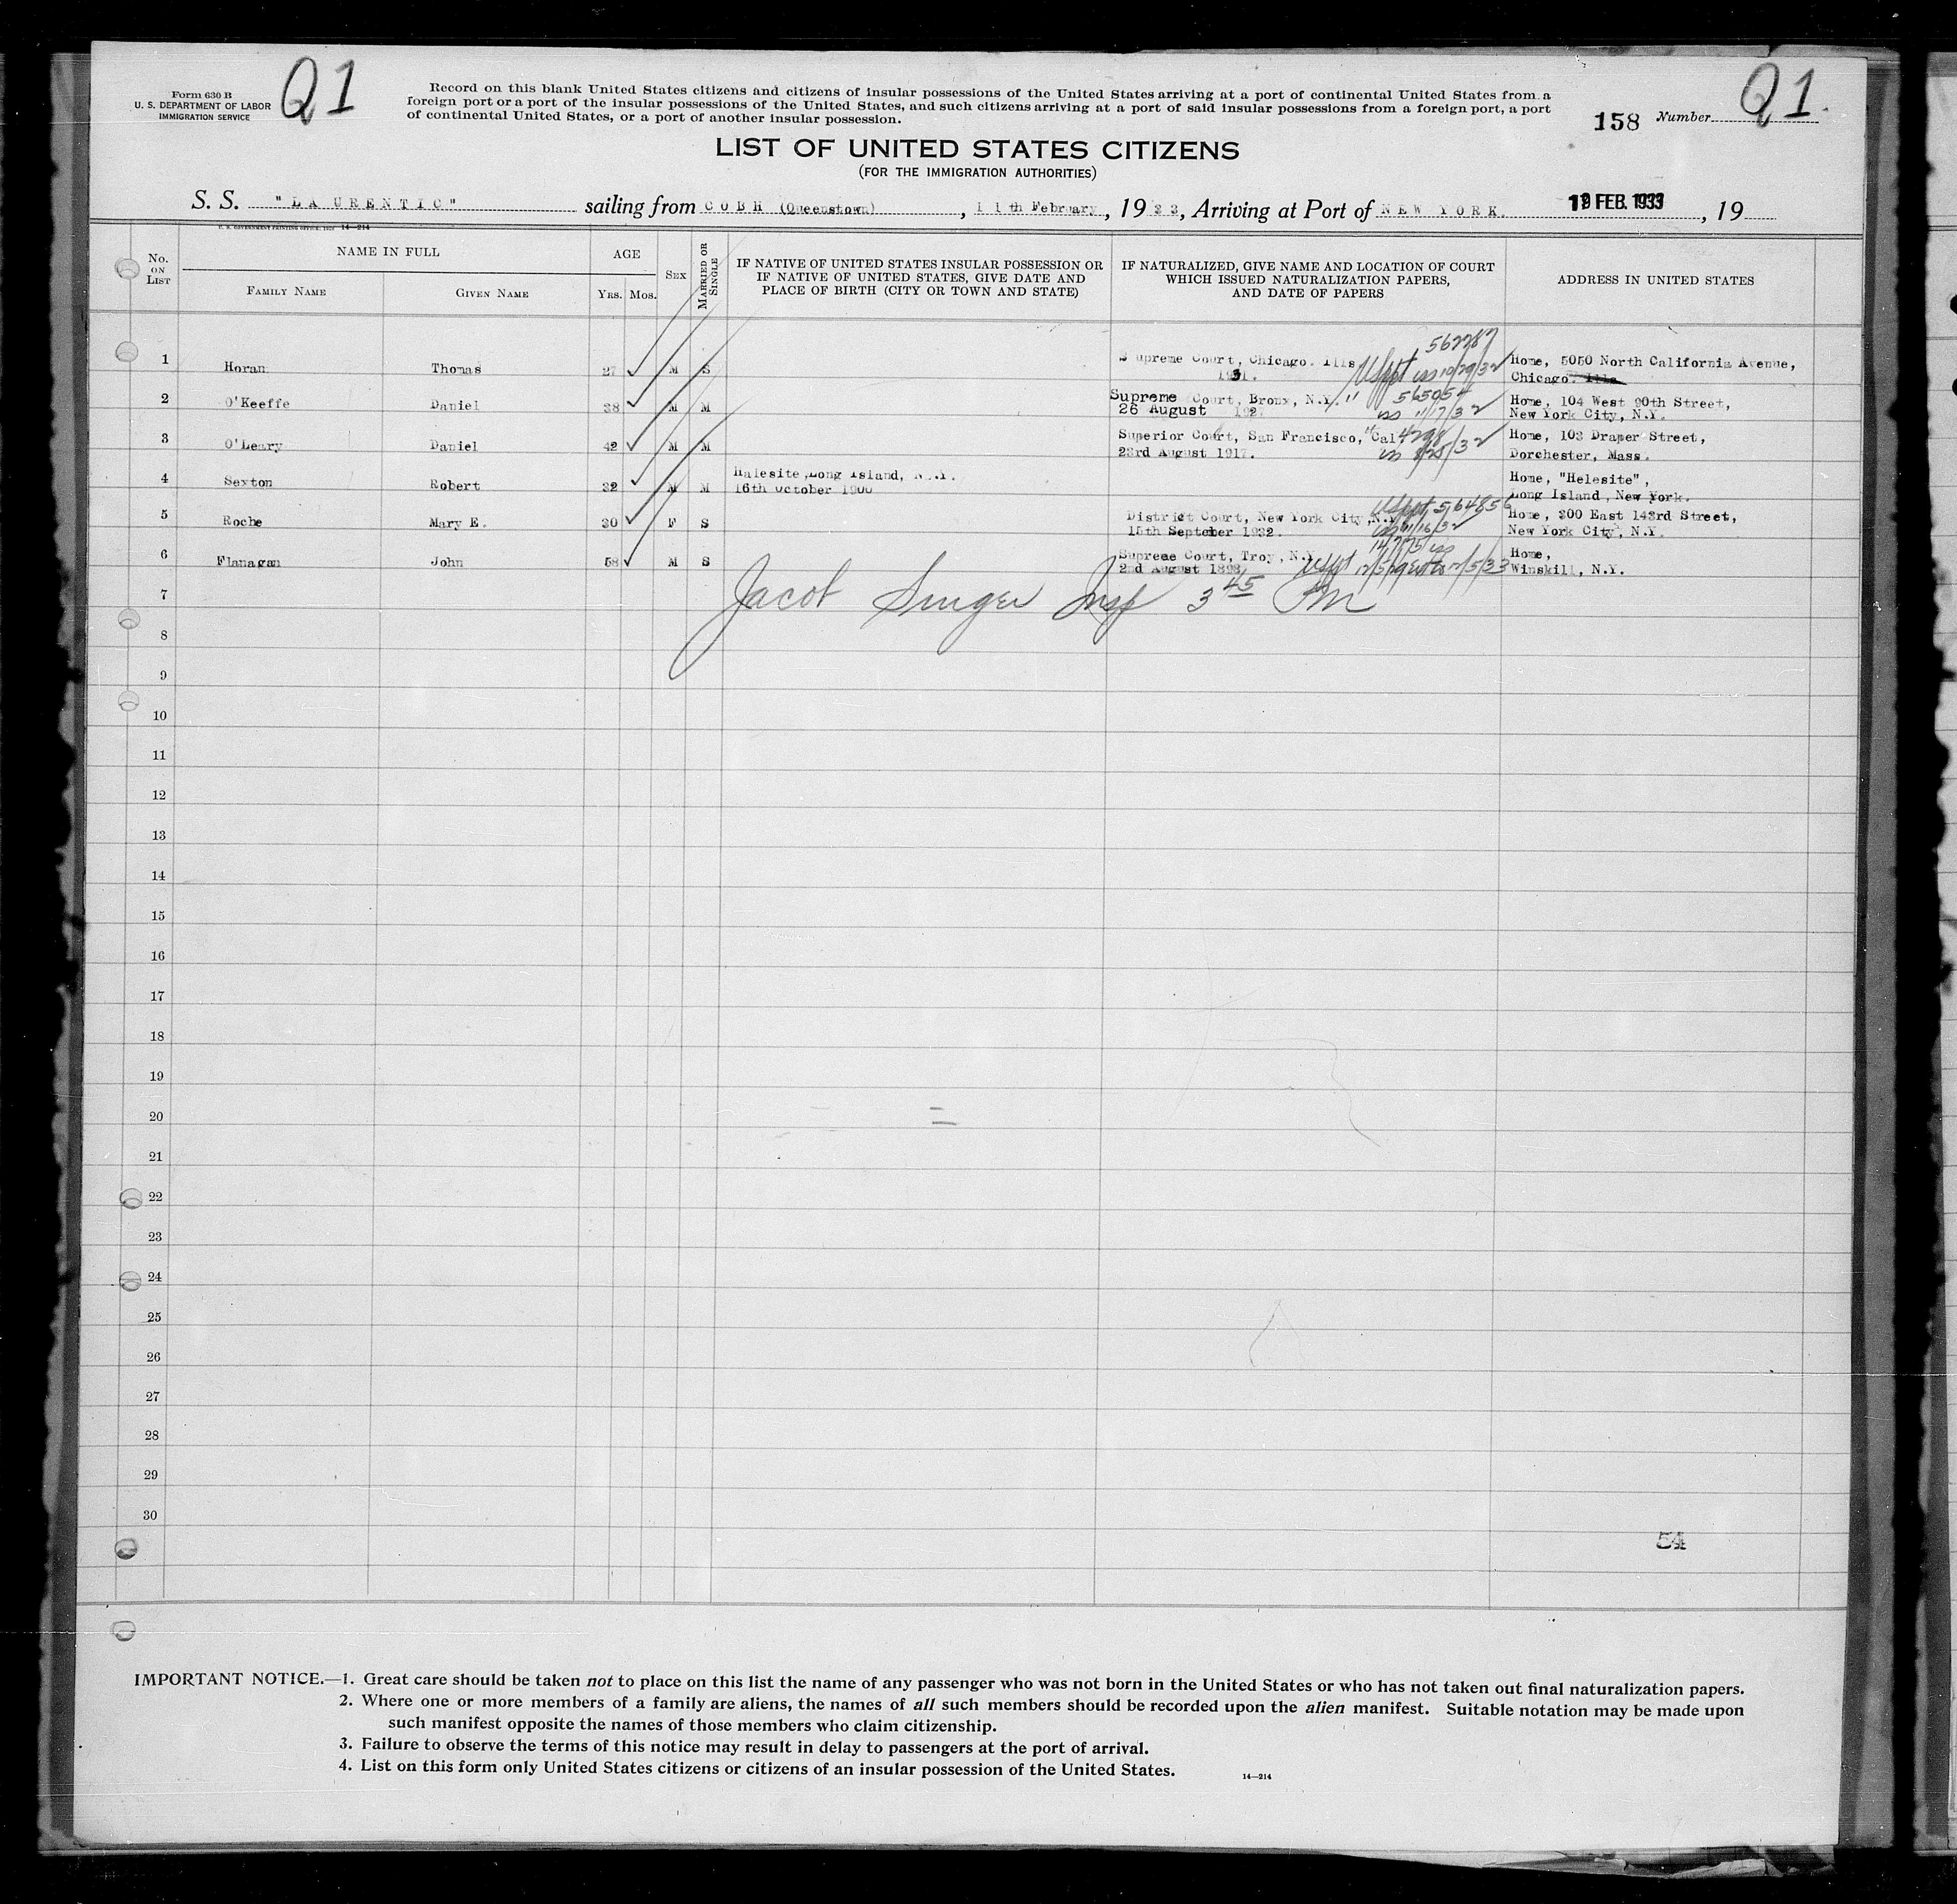 Form 630 B
U. S. DEPARTMENT OF LABOR
IMMIGRATION SERVICE
Q1
Record on this blank United States citizens and citizens of insular possessions of the United States arriving at a port of continental United States from a
foreign port or a port of the insular possessions of the United States, and such citizens arriving at a port of said insular possessions from a foreign port, a port
of continental United States, or a port of another insular possession.
158 Number Q1
LIST OF UNITED STATES CITIZENS
(FOR THE IMMIGRATION AUTHORITIES)
S. S. "LAURENTIC" sailing from COBH (Queenstown), 11th February, 1933, Arriving at Port of NEW YORK. FEB. 1933, 19
U. S. GOVERNMENT PRINTING OFFICE 14—214
No. ON LIST
NAME IN FULL
FAMILY NAME
GIVEN NAME
AGE
YRS. MOS.
SEX
MARRIED OR SINGLE
IF NATIVE OF UNITED STATES INSULAR POSSESSION OR
IF NATIVE OF UNITED STATES, GIVE DATE AND
PLACE OF BIRTH (CITY OR TOWN AND STATE)
IF NATURALIZED, GIVE NAME AND LOCATION OF COURT
WHICH ISSUED NATURALIZATION PAPERS,
AND DATE OF PAPERS
ADDRESS IN UNITED STATES
562287
1 Horan Thomas 27 ✓ M S Supreme Court, Chicago. Ills USppt iss 10/29/32 Home, 5050 North California Avenue,
1931. Chicago. Ills
2 O'Keeffe Daniel 38 ✓ M M Supreme Court, Bronx, N.Y. " 565054 Home, 104 West 90th Street,
26 August 192 iss 11/17/32 New York City, N.Y.
3 O'Leary Daniel 42 ✓ M M Superior Court, San Francisco, Cal. Home, 103 Draper Street,
23rd August 1917. Dorchester, Mass.
4 Sexton Robert 32 ✓ M M Halesite, Long Island, N.Y. Home, "Helesite",
16th October 1900 Long Island, New York.
5 Roche Mary E. 30 ✓ F S District Court, New York City, N.Y. USppt 564856 Home, 300 East 143rd Street,
15th September 1932. iss 11/16/32 New York City, N.Y.
6 Flanagan John 58 ✓ M S Supreme Court, Troy, N.Y. Home,
2nd August 1898 USppt Winskill, N.Y.
7
Jacob Singer Insp 3 45 PM
8
9
10
11
12
13
14
15
16
17
18
19
20
21
22
23
24
25
26
27
28
29
30
54
IMPORTANT NOTICE.—1. Great care should be taken not to place on this list the name of any passenger who was not born in the United States or who has not taken out final naturalization papers.
2. Where one or more members of a family are aliens, the names of all such members should be recorded upon the alien manifest. Suitable notation may be made upon
such manifest opposite the names of those members who claim citizenship.
3. Failure to observe the terms of this notice may result in delay to passengers at the port of arrival.
4. List on this form only United States citizens or citizens of an insular possession of the United States.
14—214